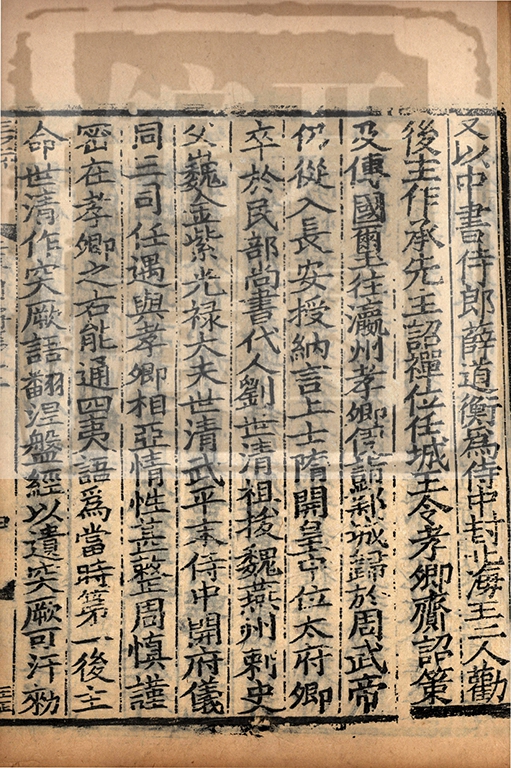 又以中書侍郎薛道衡為侍中封北海王二人勸
後主作承先主詔禪位任城王令孝卿齎詔策
及傳國璽往瀛州孝卿便詣鄴城歸於周武帝
仍從入長安授納言上士隋開皇中位太府卿
卒於民部尚書代人劉世清祖拔魏燕州刺史
父巍金紫光祿大夫世清武平末侍中開府儀
同三司任遇與孝卿相亞情性甚整周慎謹
密在孝卿之右能通四夷語為當時第一後主
命世清作突厥語翻涅盤經以遺突厥可汗勑